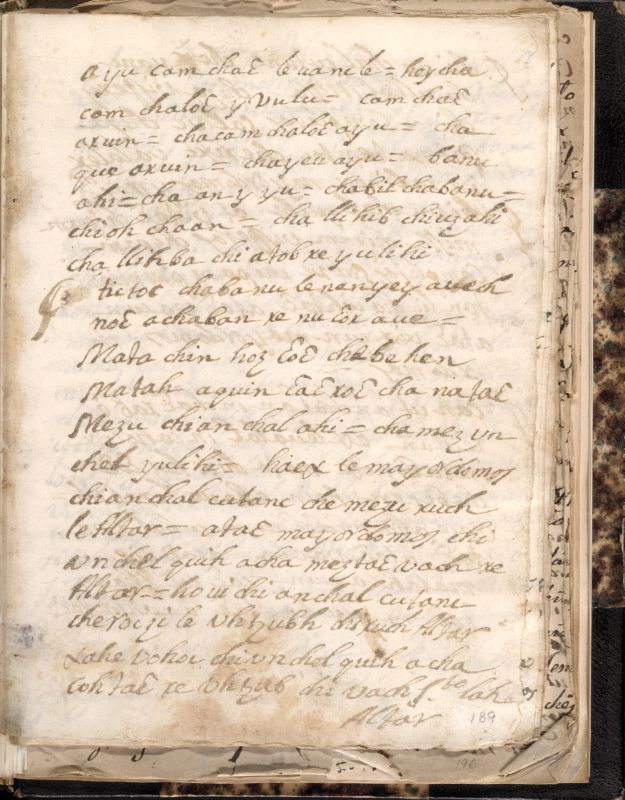 ayu cam chaɛ le uancle = heycha
cam chaloɛ y vulu = cam chaɛ
axuin = chacam chaloɛ ayu = cha
que axuin = chayeu ayu = banu
ahi = cha an y yu = chabil chabanu =
chioh chaan = cha llihib chiuzahi
cha llihba chi atob xe yulihi
tictoc chabanu le nanyey auech
noɛ achaban xe nu ɛox aue =
Mata chin hoz ɛoɛ chebe hen
Matah aquin ɛaɛ xoɛ cha nataɛ
Mezu chian chal ahi = cha mez vn
chel yulihi = haex le mayordomos
chianchal cutanc che mezu xuch
le Altar = ataɛ mayordomos chi
vnchel quih acha meztaɛ vach xe
Altar = ho ui chi anchal cutanc
che rocizi le vhtzubh chi xuch Altar
Lahe vohoc chi vnchel quih acha
coh taɛ xe vhtzub chi vach s.to lah
Altar
189
196